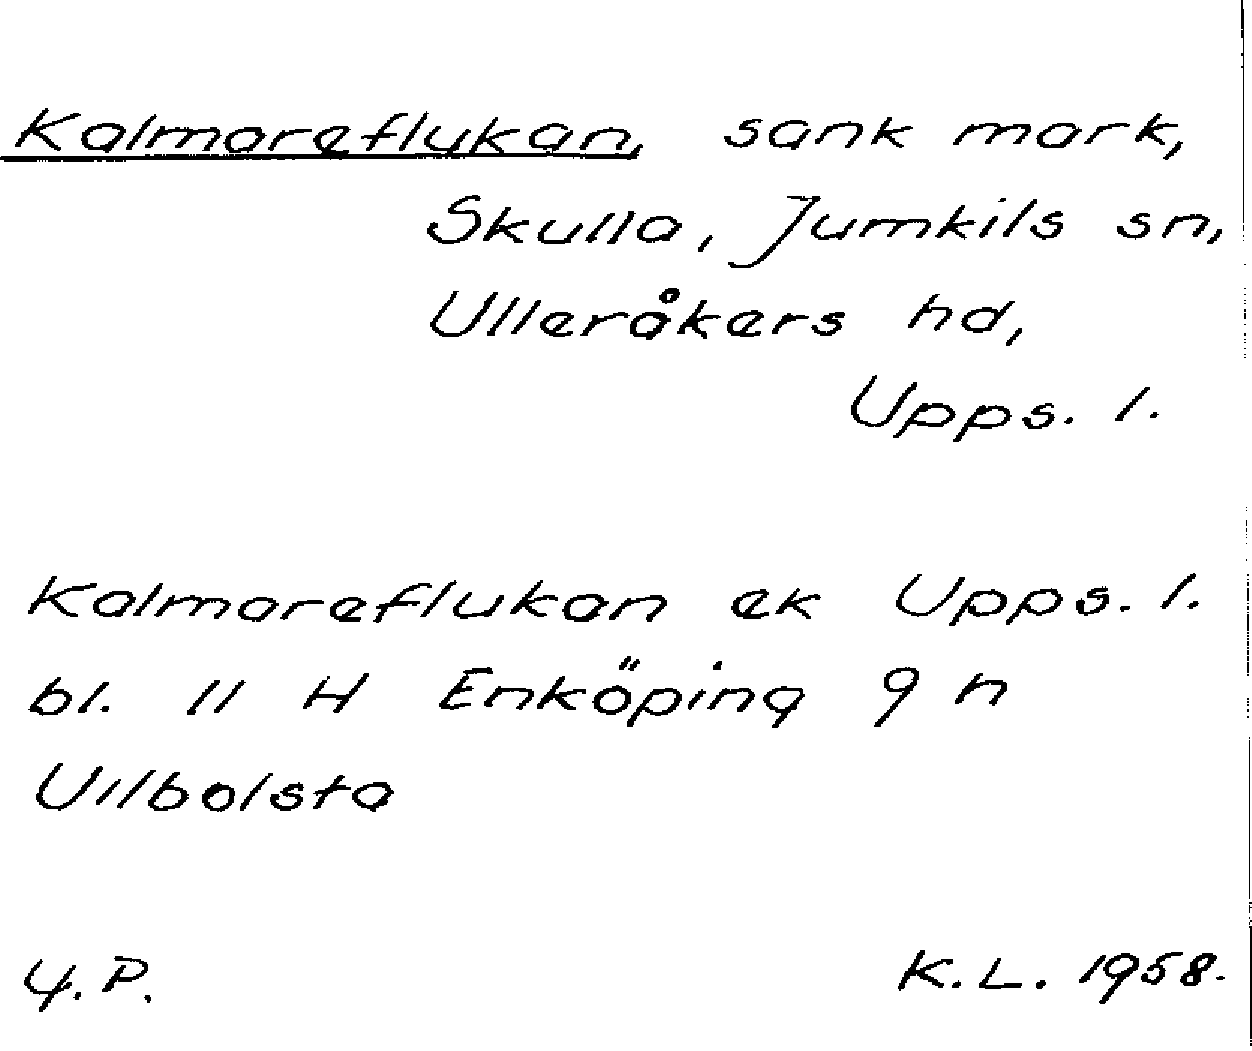 Kalmareflukan, sank mark,
Skulla, Jumkils sn,
Ulleråkers hd,
Upps. l.
Kalmareflukan ek Upps. l.
bl. 11 H Enköping 9 h
Uilbolsta
Y. P. K. L. 1958.